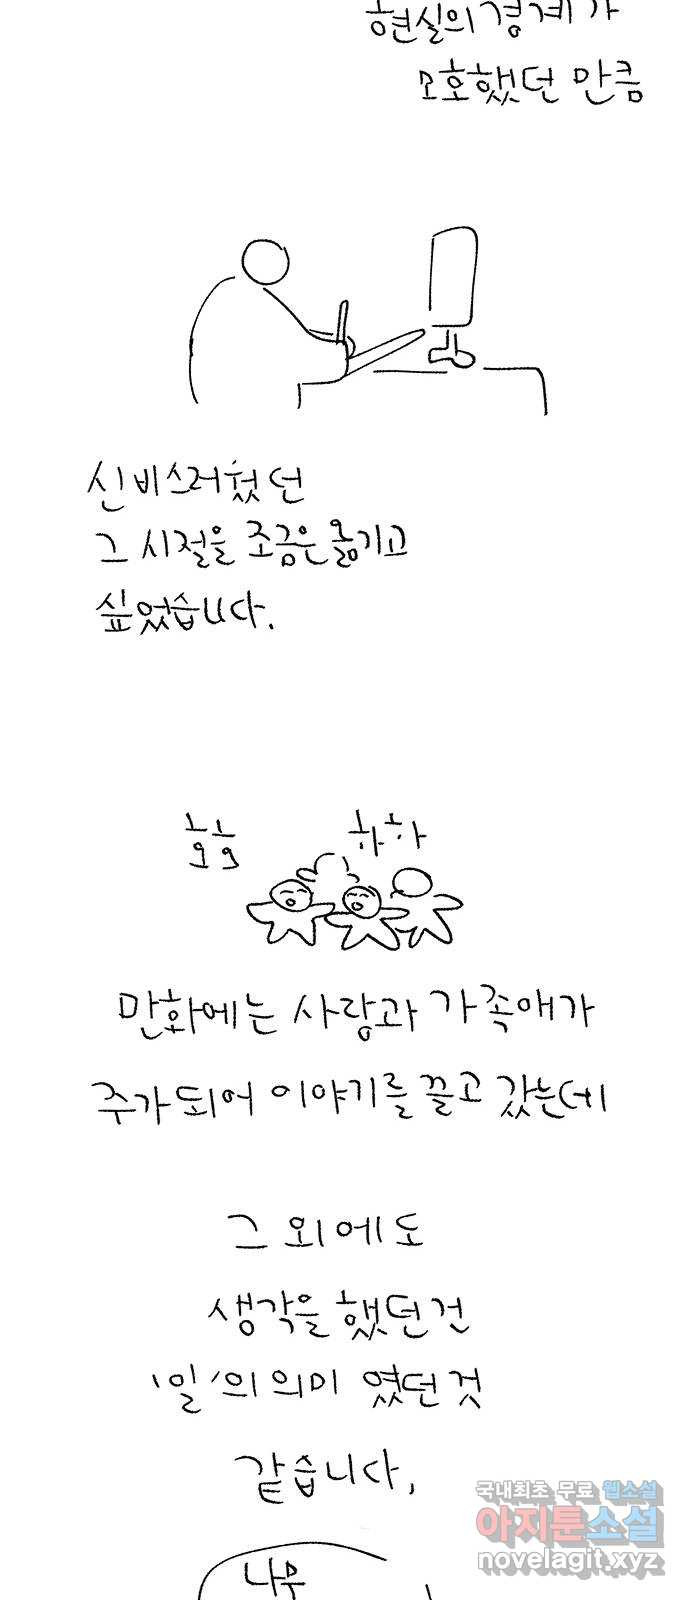 현실의 경계가
모호했던 만큼
신비스러웠던
그 시절을 조금은 옮기고
싶었습니다.
흥흥
하하
만화에는 사랑과 가족애가
주가되어 이야기를 끌고 갔는데
그 외에도
생각을 했던건
'일'의 의미 였던것
같습니다.
국내최초 무료 웹소설
아지툰소설
novelagit.xyz
나무